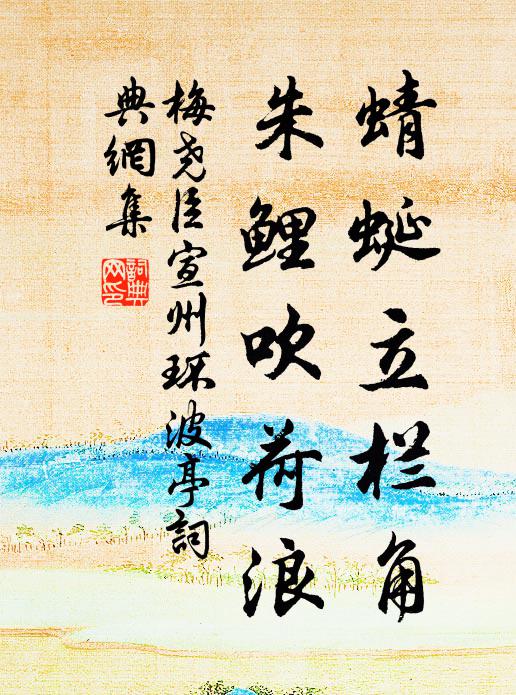 蜻蜓立栏角
朱鲤吹荷浪
梅尧臣宣州环波亭詞
典網集
詞典
网印